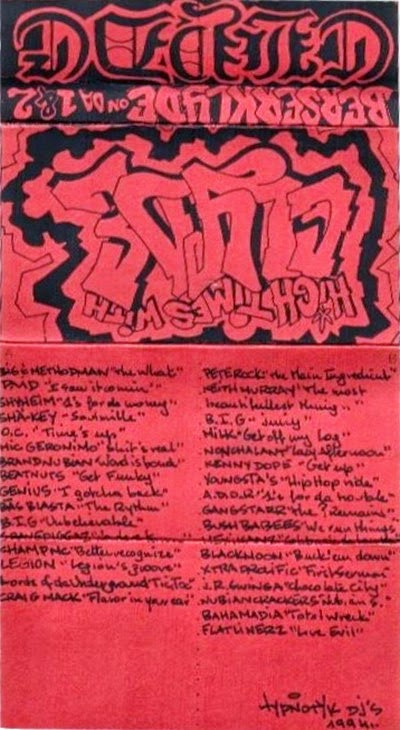 CLYDE
BERSERKLYDE ON DA 1&2
CLYDE
HIGH TIMES WITH
A
BIG & METHODMAN "the What"
PMD "I saw it comin'"
SHYHEIM "1's for da money"
SHA-KEY "Soulsville"
O.C. "Time's up"
MIC GERONIMO "shit's real"
BRAND NUBIAN "Word is bond"
BEATNUTS "Get Funky"
GENIUS "I gotcha back"
RAS BLASTA "The Rythm"
B.I.G "Unbelievable"
CHAMP MC "Better recognize"
LEGION "Legion's groove"
Lords of da Underground "Tic Toc"
CRAIG MACK "Flavor in ya ear"
B
PETE ROCK "the Main Ingredient"
KEITH MURRAY "The most
beautifullest thing..."
B.I.G - Juicy
MILK "Get off my log"
NONCHALANT "Lazy afternoon"
KENNY DOPE "Get up"
YOUNGSTA'S "Hip Hop ride"
A.D.O.R "1's for da trouble"
GANGSTARR "the ? Remainz"
BUSH BABEES "We run things"
BLACKMOON "Buck 'em down"
XTRA PROLIFIC "First sermon"
J.R. SWINGA "Chocolate City"
NUBIAN CRACKERS
BAHAMADIA "Total Wreck"
FLATLINERZ "Live Evil"
HYPNOTYK DJ'S
1994..